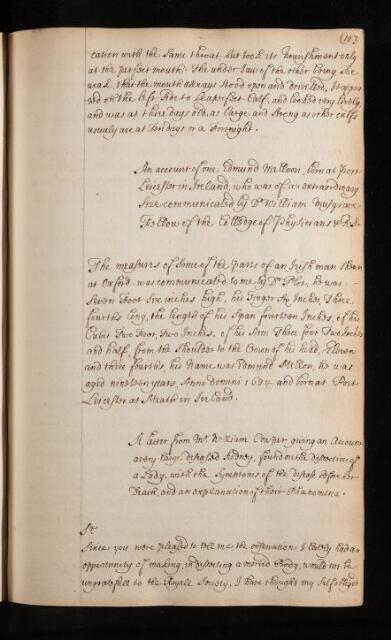 163
cation with the same throat but took its Nourishment only
at the perfect mouth. The under Jaw of the other being soe
weak, that the mouth always stood open and drivelled, it appea
red on the left side to be a perfect Calf, and looked very lively,
and was at three days old, as large and strong as other calfs
usualy are at ten days or a fortnight.
An account of one Edmund Malloon, born at Port
Leicester in Ireland, who was of an extraordinary
size communicated by Dr William Musgrave
Fellow of the Colledge of Physicians & R.S.
The measures of some of the parts of an Irish man shown
at Oxford was communicated to me by Dr Plot, he was
Seven Foot six inches high, his finger six Inches, Three
fourths long, the length of his span fourteen Inches, of his
Cubit Two Foot, Two Inches, of his Arm Three foot Two Inches
and half, from the shoulder to the Crown of his head, Eleven
and three fourths, his Name was Edmund Mallon, he was
aged nineteen years, Anno Domini 1684 and born at Port-
Leicester at Meath in Ireland.
A letter from Mr. William Cowper giving an Account
a very large diseased Kidney, found on the dissection of
a Lady, with the Symptoms of the disease before her
Death, and an explanation of their Phænomena.
Sr.
Since you were pleased to tell me the observations I lately had an
opportunity of making, in dissecting a morbid Body, would not be
ungratefull to the Royall Society, I have thought my self obliged